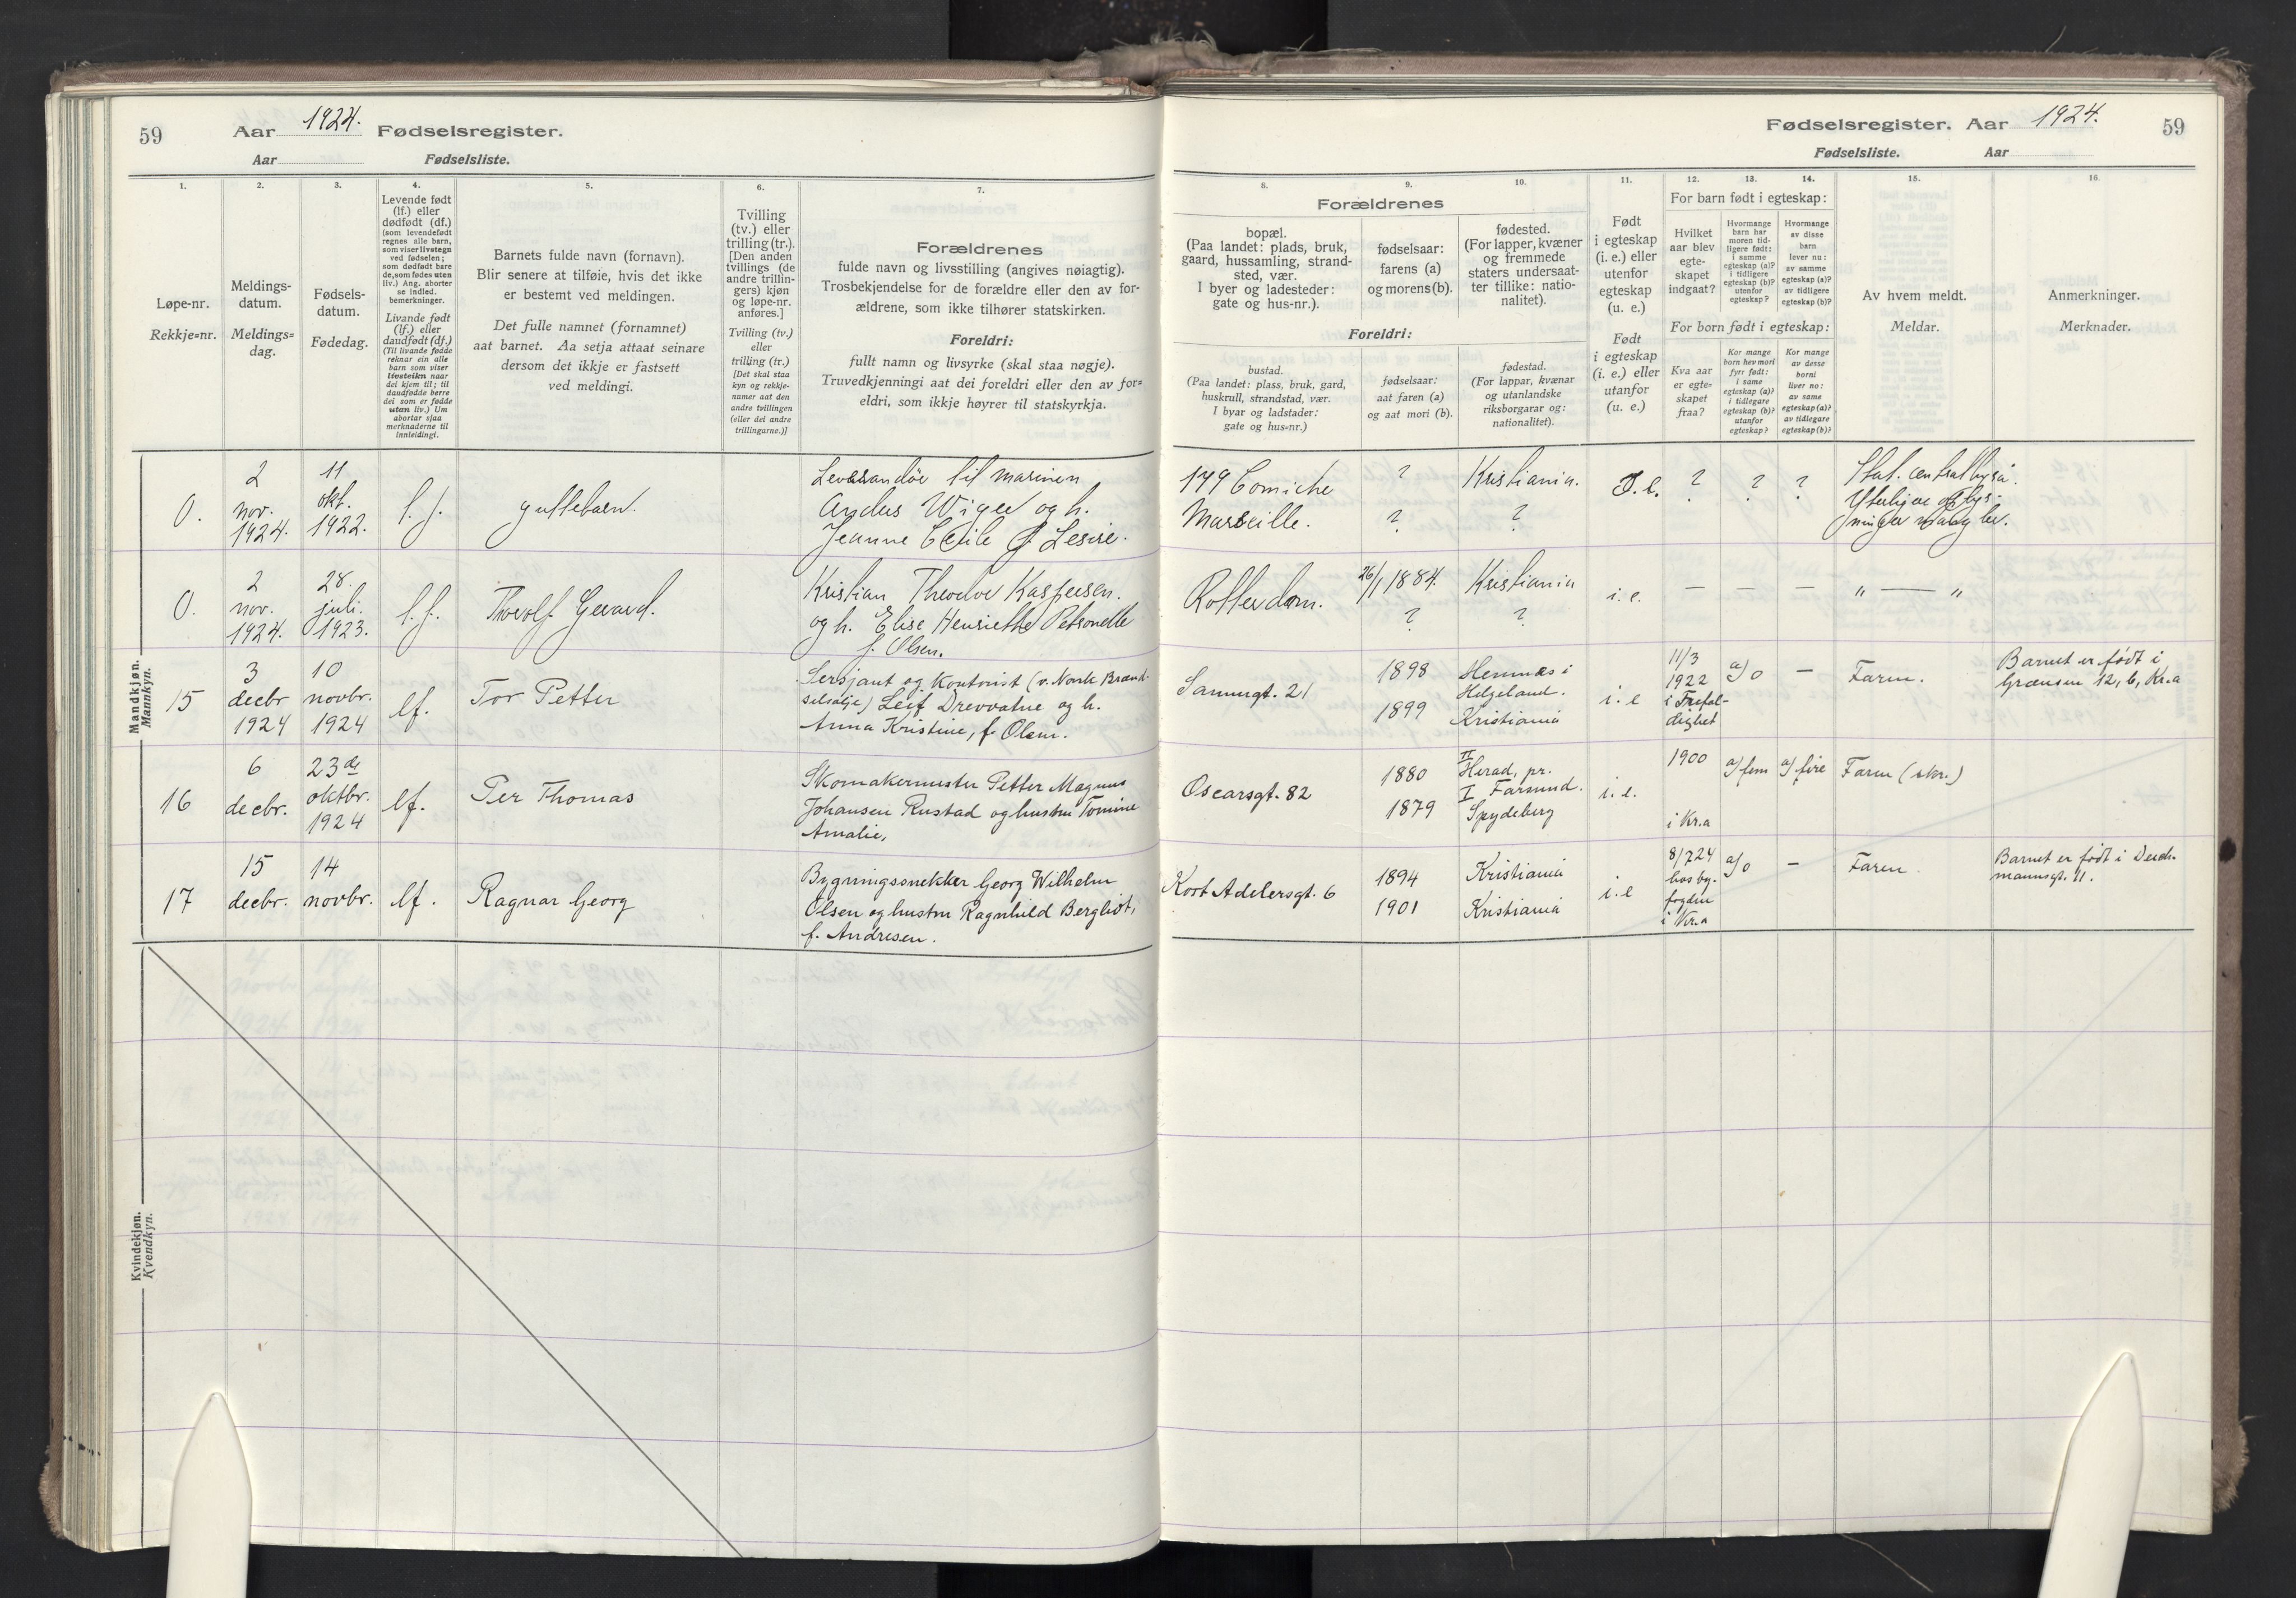 59
Aar 1924. Fødselsregister.
Aar Fødselsliste.
Fødselsregister. Aar 1924.
59
Fødselsliste. Aar
1.
Løpe-nr.
Rekkje=nr.
2.
Meldings-
datum.
Meldings=
dag.
3.
Fødsels-
datum.
Fødedag.
4.
Levende født
(lf.) eller
dødfødt (df.)
(som levendefødt
regnes alle barn,
som viser livstegn
ved fødselen;
som dødfødt bare
de, som fødes uten
liv.) Ang. aborter
se indled.
bemerkninger.
Livande født
(lf.) eller
daudfødt (df.)
(Til livande fødde
reknar ein alle
barn som viser
livsteikn naar
dei kjem til; til
daudfødde berre
dei som er fødde
utan liv.) Um
abortar sjaa
merknaderne til
innleidingi.
5.
Barnets fulde navn (fornavn).
Blir senere at tilføie, hvis det ikke
er bestemt ved meldingen.
Det fulle namnet (fornamnet)
aat barnet. Aa setja attaat seinare
dersom det ikkje er fastsett
ved meldingi.
6.
Tvilling
(tv.) eller
trilling (tr.).
[Den anden
tvillings (de
andre trillin-
gers) kjøn
og løpe-nr.
anføres.]
Tvilling (tv.)
eller
trilling (tr.)
[Det skal staa
kyn og rekkje-
numer aat den
andre tvillingen
(eller dei andre
trillingarne.)]
7.
Forældrenes
fulde navn og livsstilling (angives nøiagtig).
Trosbekjendelse for de forældre eller den av for-
ældrene, som ikke tilhører statskirken.
Foreldri:
fullt namn og livsyrke (skal staa nøgje).
Truvedkjenningi aat dei foreldri eller den av for=
eldri, som ikkje høyrer til statskyrkja.
Forældrenes
8.
bopæl.
(Paa landet: plads, bruk,
gaard, hussamling, strand-
sted, vær.
I byer og ladesteder:
gate og hus-nr.).
9.
fødselsaar:
farens (a)
og morens (b).
10.
fødested.
(For lapper, kvæner
og fremmede
staters undersaat-
ter tillike: natio-
nalitet).
Foreldri:
bustad.
(Paa landet: plass, bruk, gard,
huskrull, strandstad, vær.
I byar og ladstader:
gate og hus=nr.)
fødselsaar:
aat faren (a)
og aat mori (b).
fødestad.
(For lappar, kvænar
og utanlandske
riksborgarar og:
nationalitet).
11.
Født
i egteskap
(i. e.) eller
utenfor
egteskap
(u. e.)
Født
i egteskap
(i. e.) eller
utanfor
(u. e.)
12. 13. 14.
For barn født i egteskap:
Hvilket
aar blev
egte-
skapet
indgaat?
Hvormange
barn har
moren tid-
ligere født:
i samme
egteskap (a)?
i tidligere
egteskap (b)?
utenfor
egteskap?
Hvormange
av disse
barn
lever nu:
av samme
egteskap (a)?
av tidligere
egteskap (b)?
For born født i egteskap:
Kva aar
er egte=
skapet
fraa?
Kor mange
born hev mori
fyrr født:
i same
egteskap (a)?
i tidlegare
egteskap (b)?
utanfor
egteskap?
Kor mange
av desse
borni
liver no:
av same
egteskap (a)?
av tidlegare
egteskap (b)?
15.
Av hvem meldt.
Meldar.
16.
Anmerkninger.
Merknader.
Mandkjøn.
Mannkyn.
0.
2
nov.
1924.
11
okt.
1922.
l. f.
guttebarn.
Leverandør til marinen
Anders Wiger og h.
Jeanne Cecile f. Lesire.
179 Corniche
Marseille.
?
?
Kristiania.
?
I. e.
? ? ?
Stat. centralbyrå.
Yterligere oplys-
ninger mangler.
0.
2
nov.
1924.
28.
juli.
1923.
l. f.
Thorolf Gerard.
Kristian Theodor Kaspersen.
og h. Elise Henriette Petronelle
f. Olsen.
Rotterdam.
26/1 1884.
?
Kristiania
?
i. e.
— — —
" — "
15
3
decbr
1924
10
novbr.
1924
lf.
Tor Petter
Sersjant og Kontorist (v. Norsk Brænd-
selsolje) Leif Drevvatne og h.
Anna Kristine, f. Olsen.
Sannergt. 21
1898
1899
Hemnes i
Helgeland.
Kristiania
i. e
11/3
1922
i Trefol-
dighet
a/0
—
Faren.
Barnet er født i
Grænsen 12, b, Kr.a
16
6
decbr.
23de
oktbr.
1924
lf.
Per Thomas
Skomakermester Petter Magnus
Johansen Rustad og hustru Tomine
Amalie,
Oscarsgt. 82
1880
1879
II
Herad, pr.
I Farsund.
Spydeberg
i. e.
1900
i Kr.a
a/fem
a/fire
Faren (skr.)
17
15
decbr.
14
novbr.
lf.
Ragnar Georg
Bygningssnekker Georg Wilhelm
Olsen og hustru Ragnhild Bergliot,
f. Andresen.
Kort Adelersgt. 6
1894
1901
Kristiania
Kristiania
i. e
8/7 24
hos by-
fogden
i Kr.a
a/0
—
Faren.
Barnet er født i Deich-
mannsgt. 11.
Kvindekjøn.
Kvendkyn.